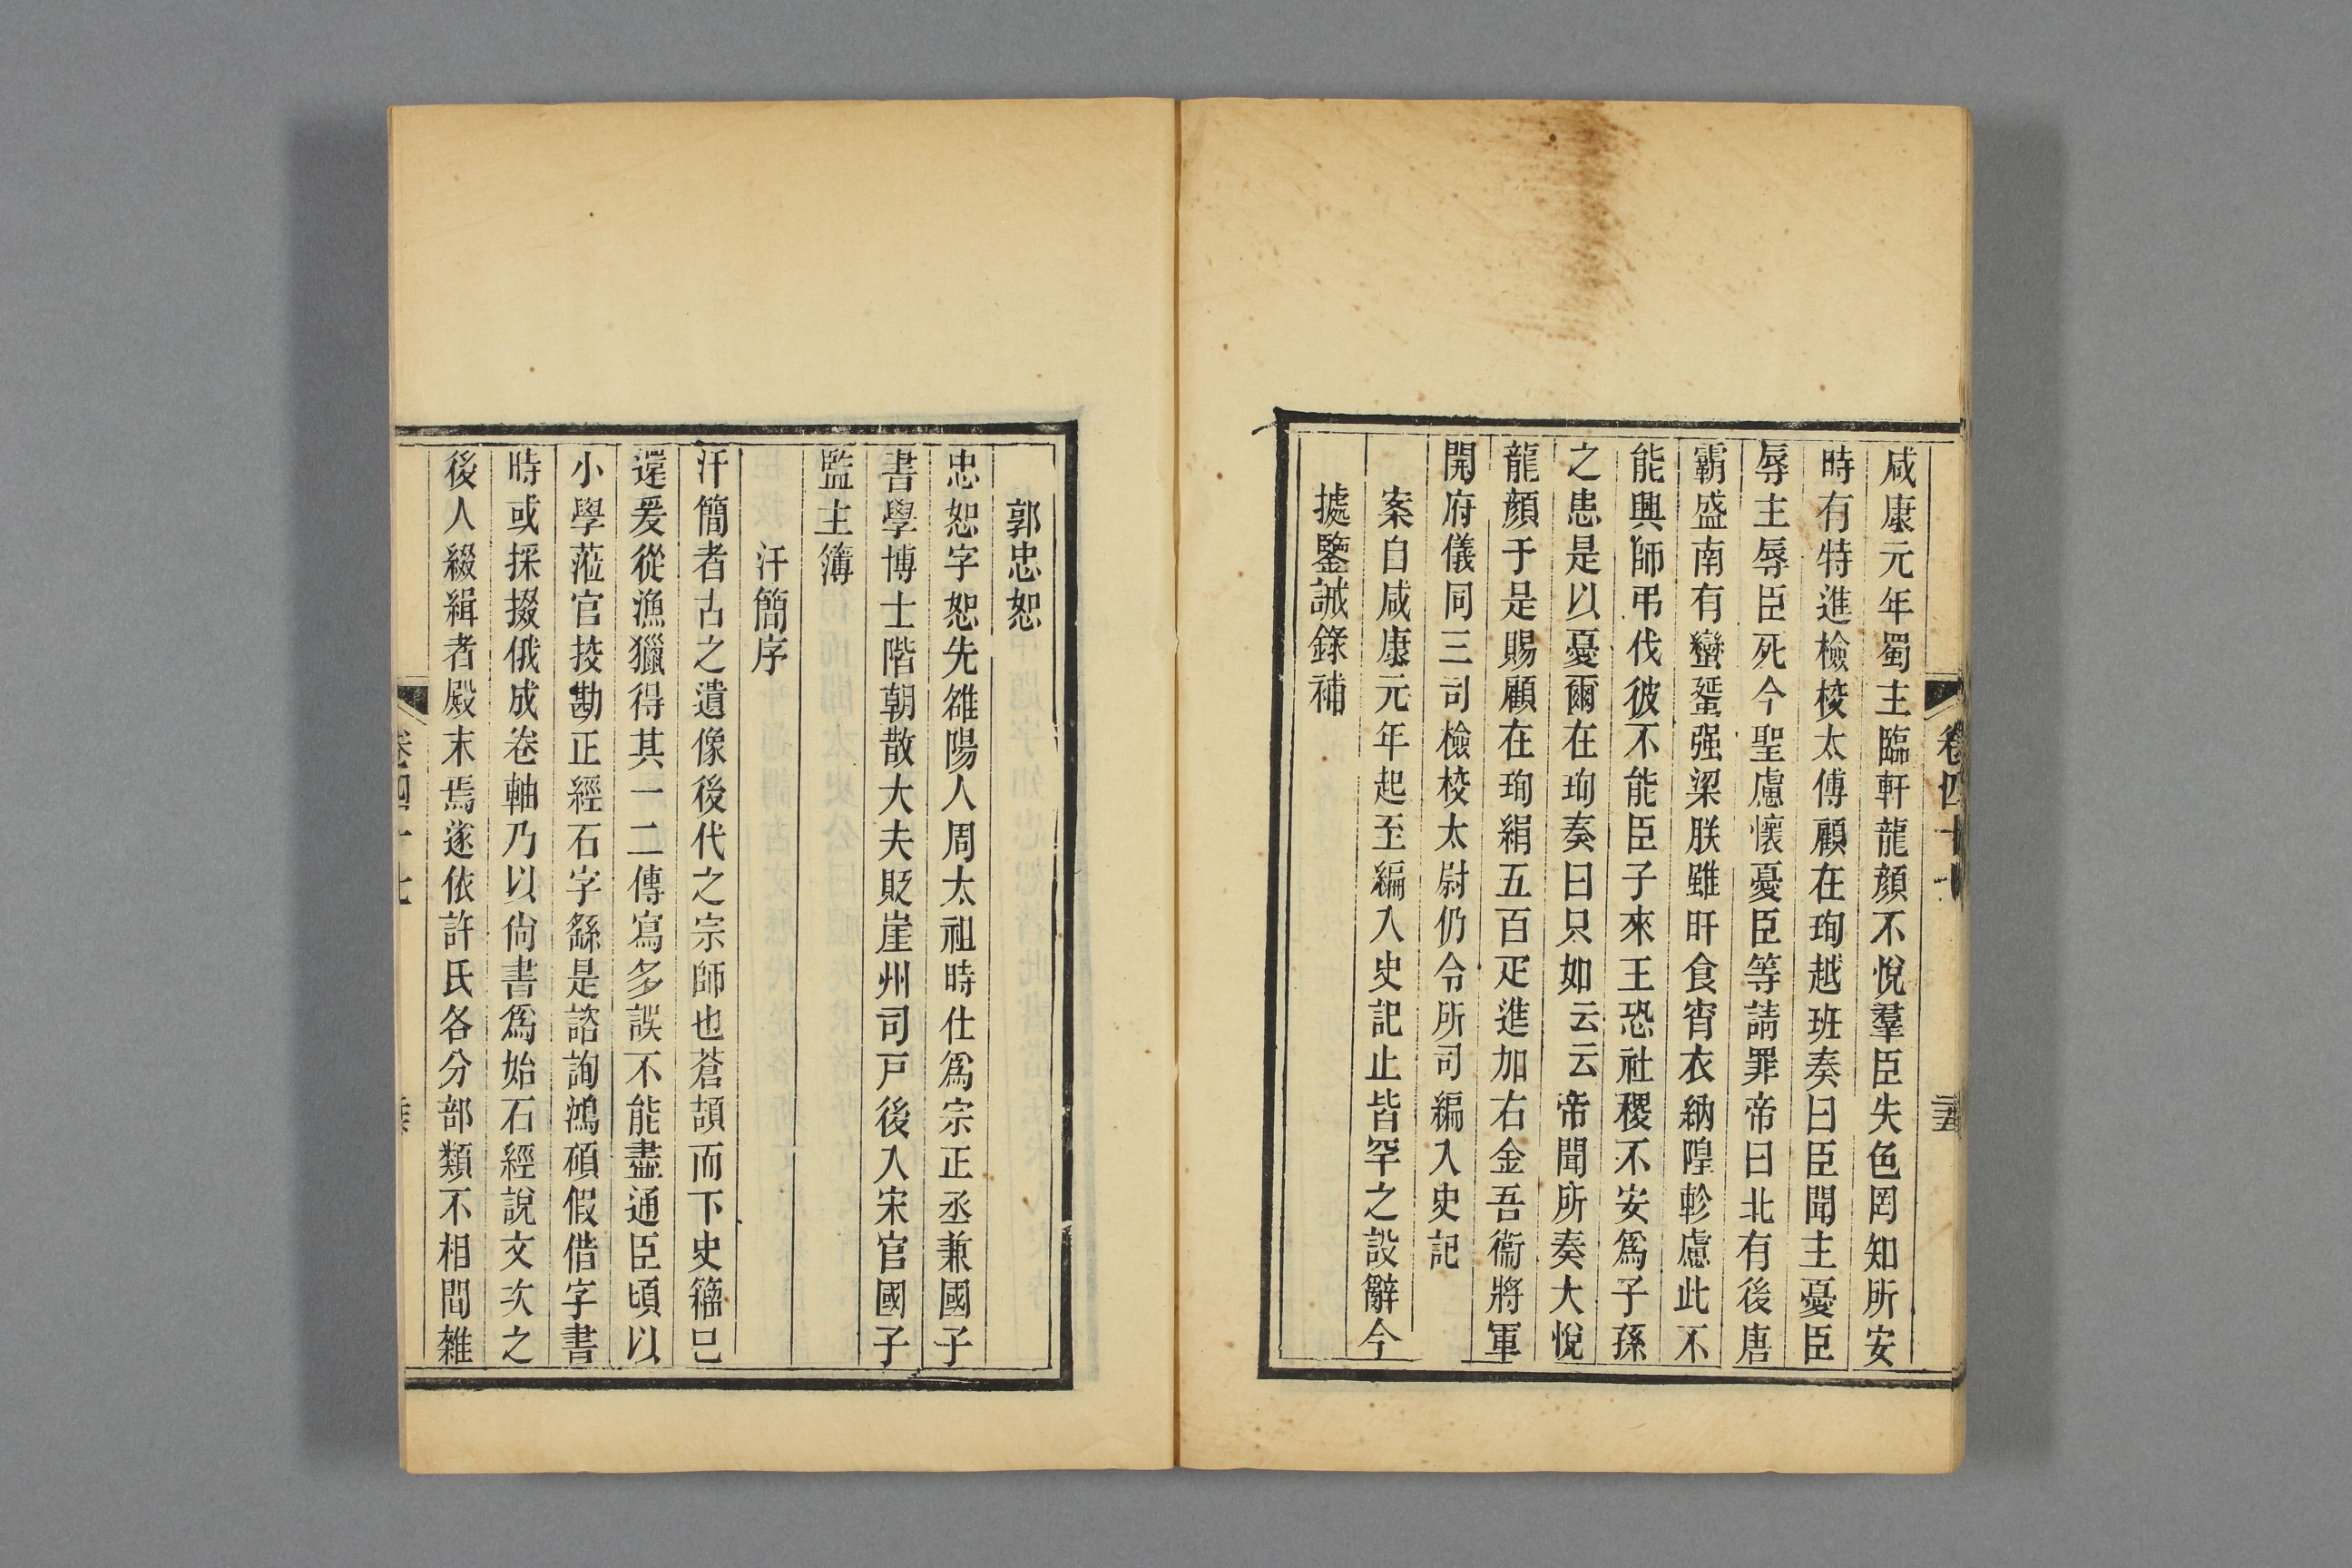 咸康元年蜀主臨軒龍顔不悅羣臣失色罔知所安
時有特進檢校太傅顧在珣越班奏曰臣聞主憂臣
辱主辱臣死今聖慮懷憂臣等請罪帝曰北有後唐
霸盛南有蠻蜑强梁朕雖旰食宵衣納隍軫慮此不
能興師弔伐彼不能臣子來王恐社稷不安爲子孫
之患是以憂爾在珣奏曰只如云云帝聞所奏大悅
龍顔于是賜顧在珣絹五百疋進加右金吾衞將軍
開府儀同三司檢校太尉仍令所司編入史記
案自咸康元年起至編入史記止皆罕之設辭今
據鑒誡錄補
卷四十七
郭忠恕
忠恕字恕先雒陽人周太祖時仕爲宗正丞兼國子
書學博士階朝散大夫貶崖州司戸後入宋官國子
監主簿
汗簡序
汗簡者古之遺像後代之宗師也蒼頡而下史籀已
還爰從漁獵得其一二傳寫多誤不能盡通臣頃以
小學涖官挍勘正經石字繇是諮詢鴻碩假借字書
時或採掇俄成卷軸乃以尙書爲始石經說文次之
後人綴緝者殿末焉遂依許氏各分部類不相間雜
卷四十七